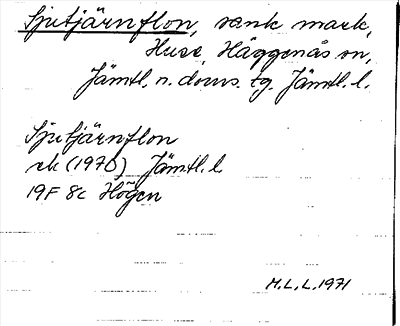 Sjutjärnflon, sank mark,
Huse, Häggenås sn,
Jämtl. n. doms. tg. Jämtl. l.
Sjutjärnflon
ek (1970) Jämtl. l
19F 8c Högen
M.L.L. 1971